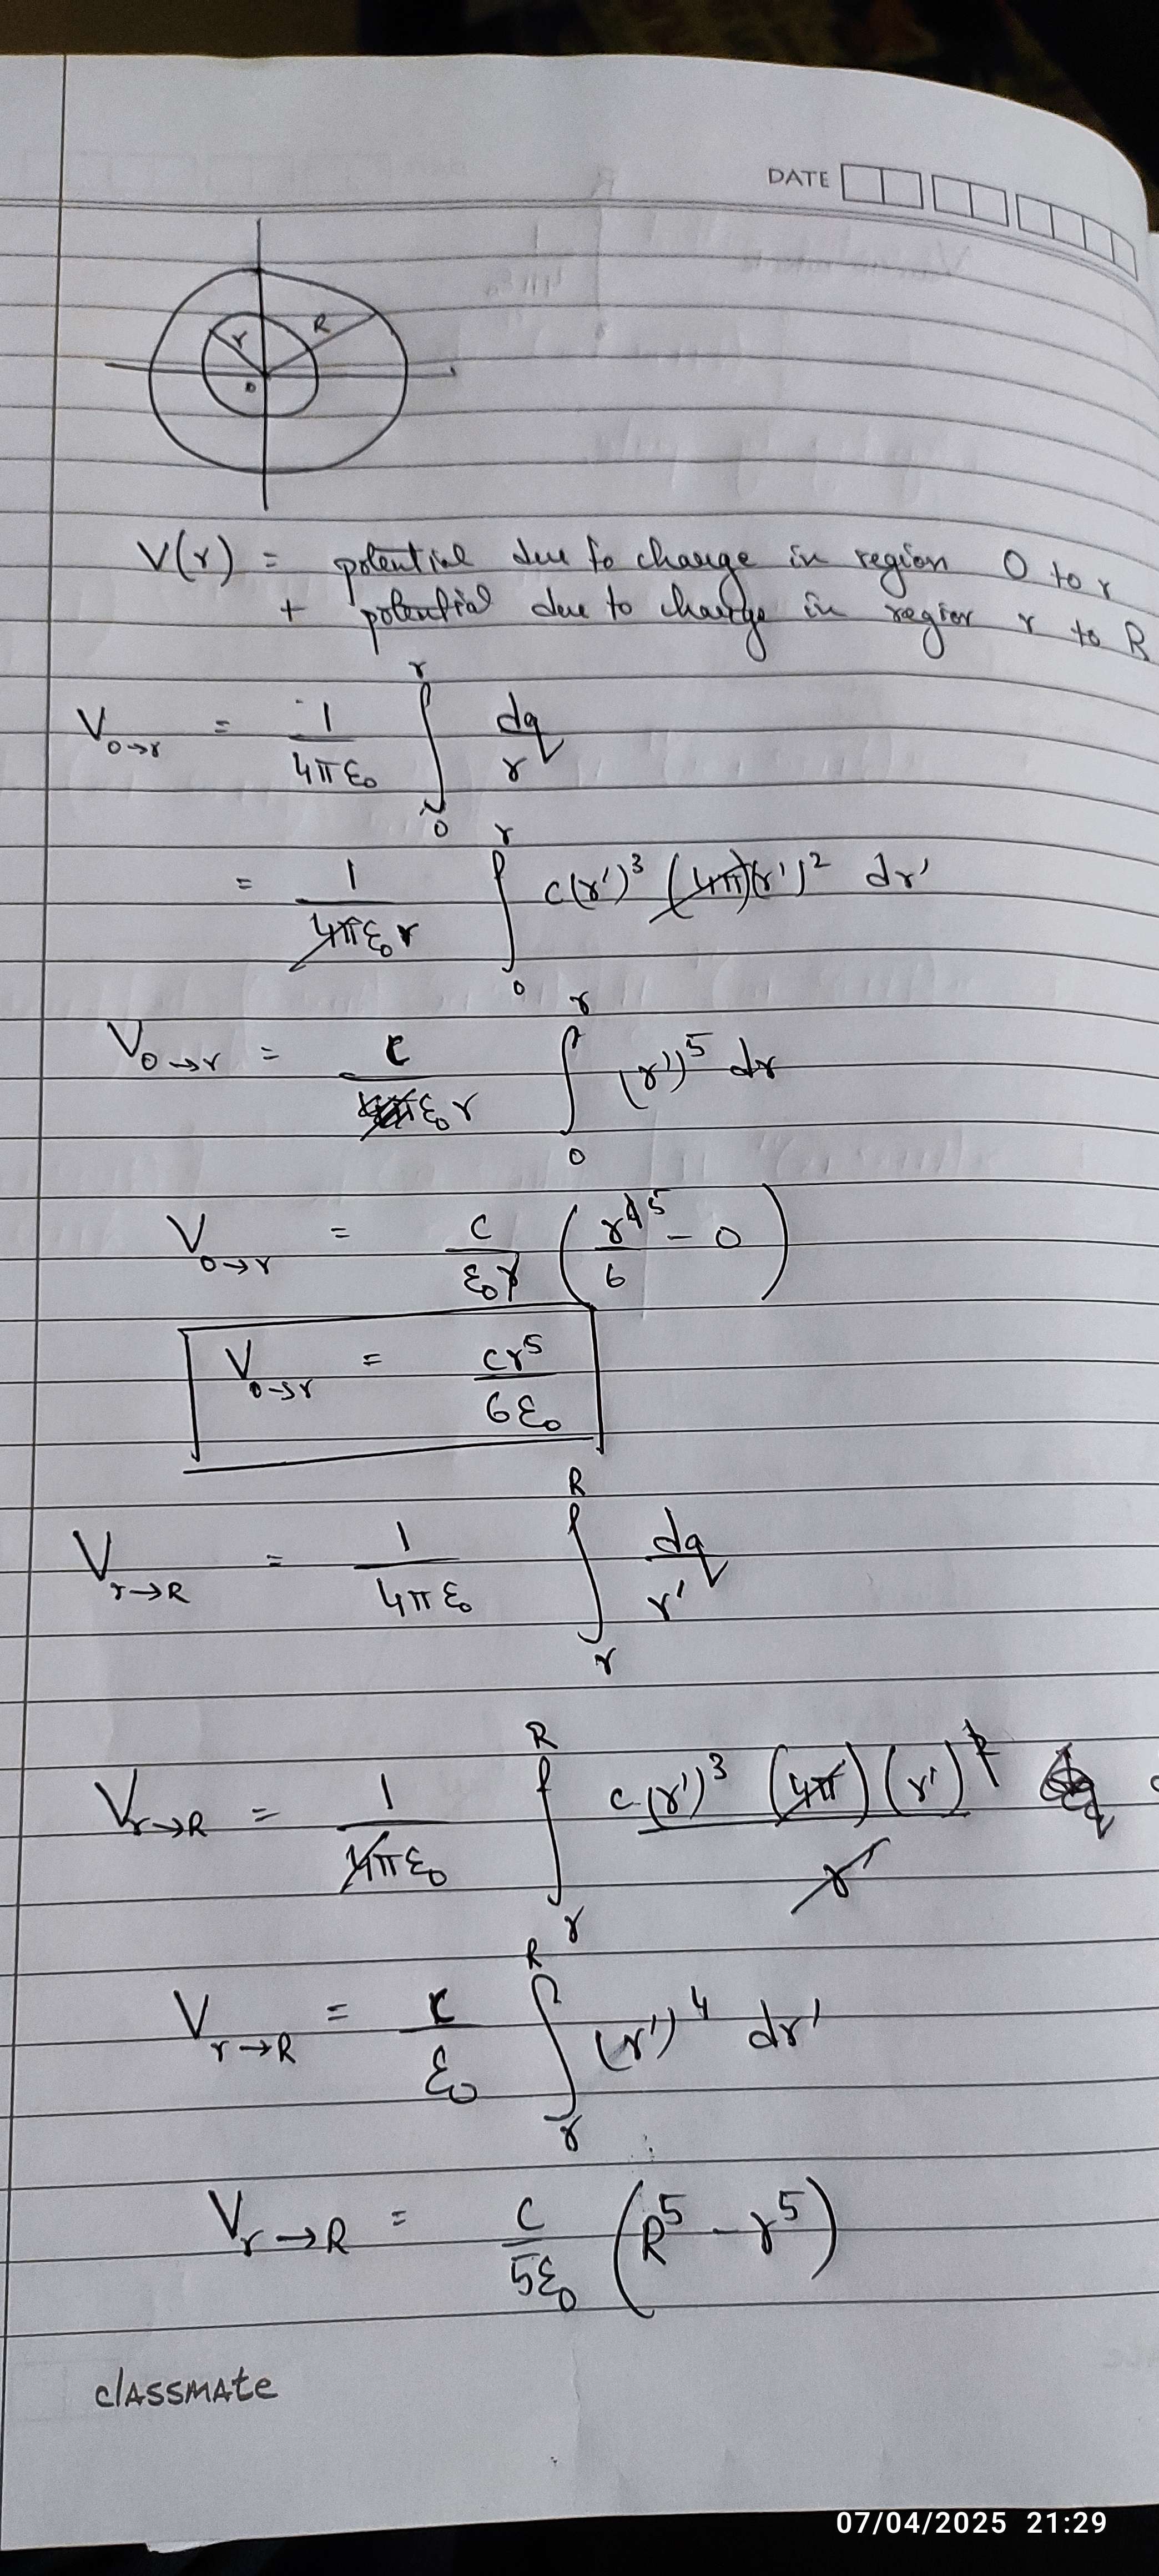 DATE
r
R
0
V(r) = potential due to charge in region 0 to r
+ potential due to charge in region r to R
V₀→r = 1/4πε₀ ∫₀^r dq/r
= 1/4πε₀r ∫₀^r c(r')³ (4π)(r')² dr'
V₀→r = c/ε₀r ∫₀^r (r')⁵ dr
V₀→r = c/ε₀r (r⁶⁵/6 - 0)
V₀→r = cr⁵/6ε₀
V r→R = 1/4πε₀ ∫r^R dq/r'
V r→R = 1/4πε₀ ∫r^R c(r')³ (4π)(r')²/r'
V r→R = c/ε₀ ∫r^R (r')⁴ dr'
V r→R = c/5ε₀ (R⁵ - r⁵)
classmate
07/04/2025 21:29